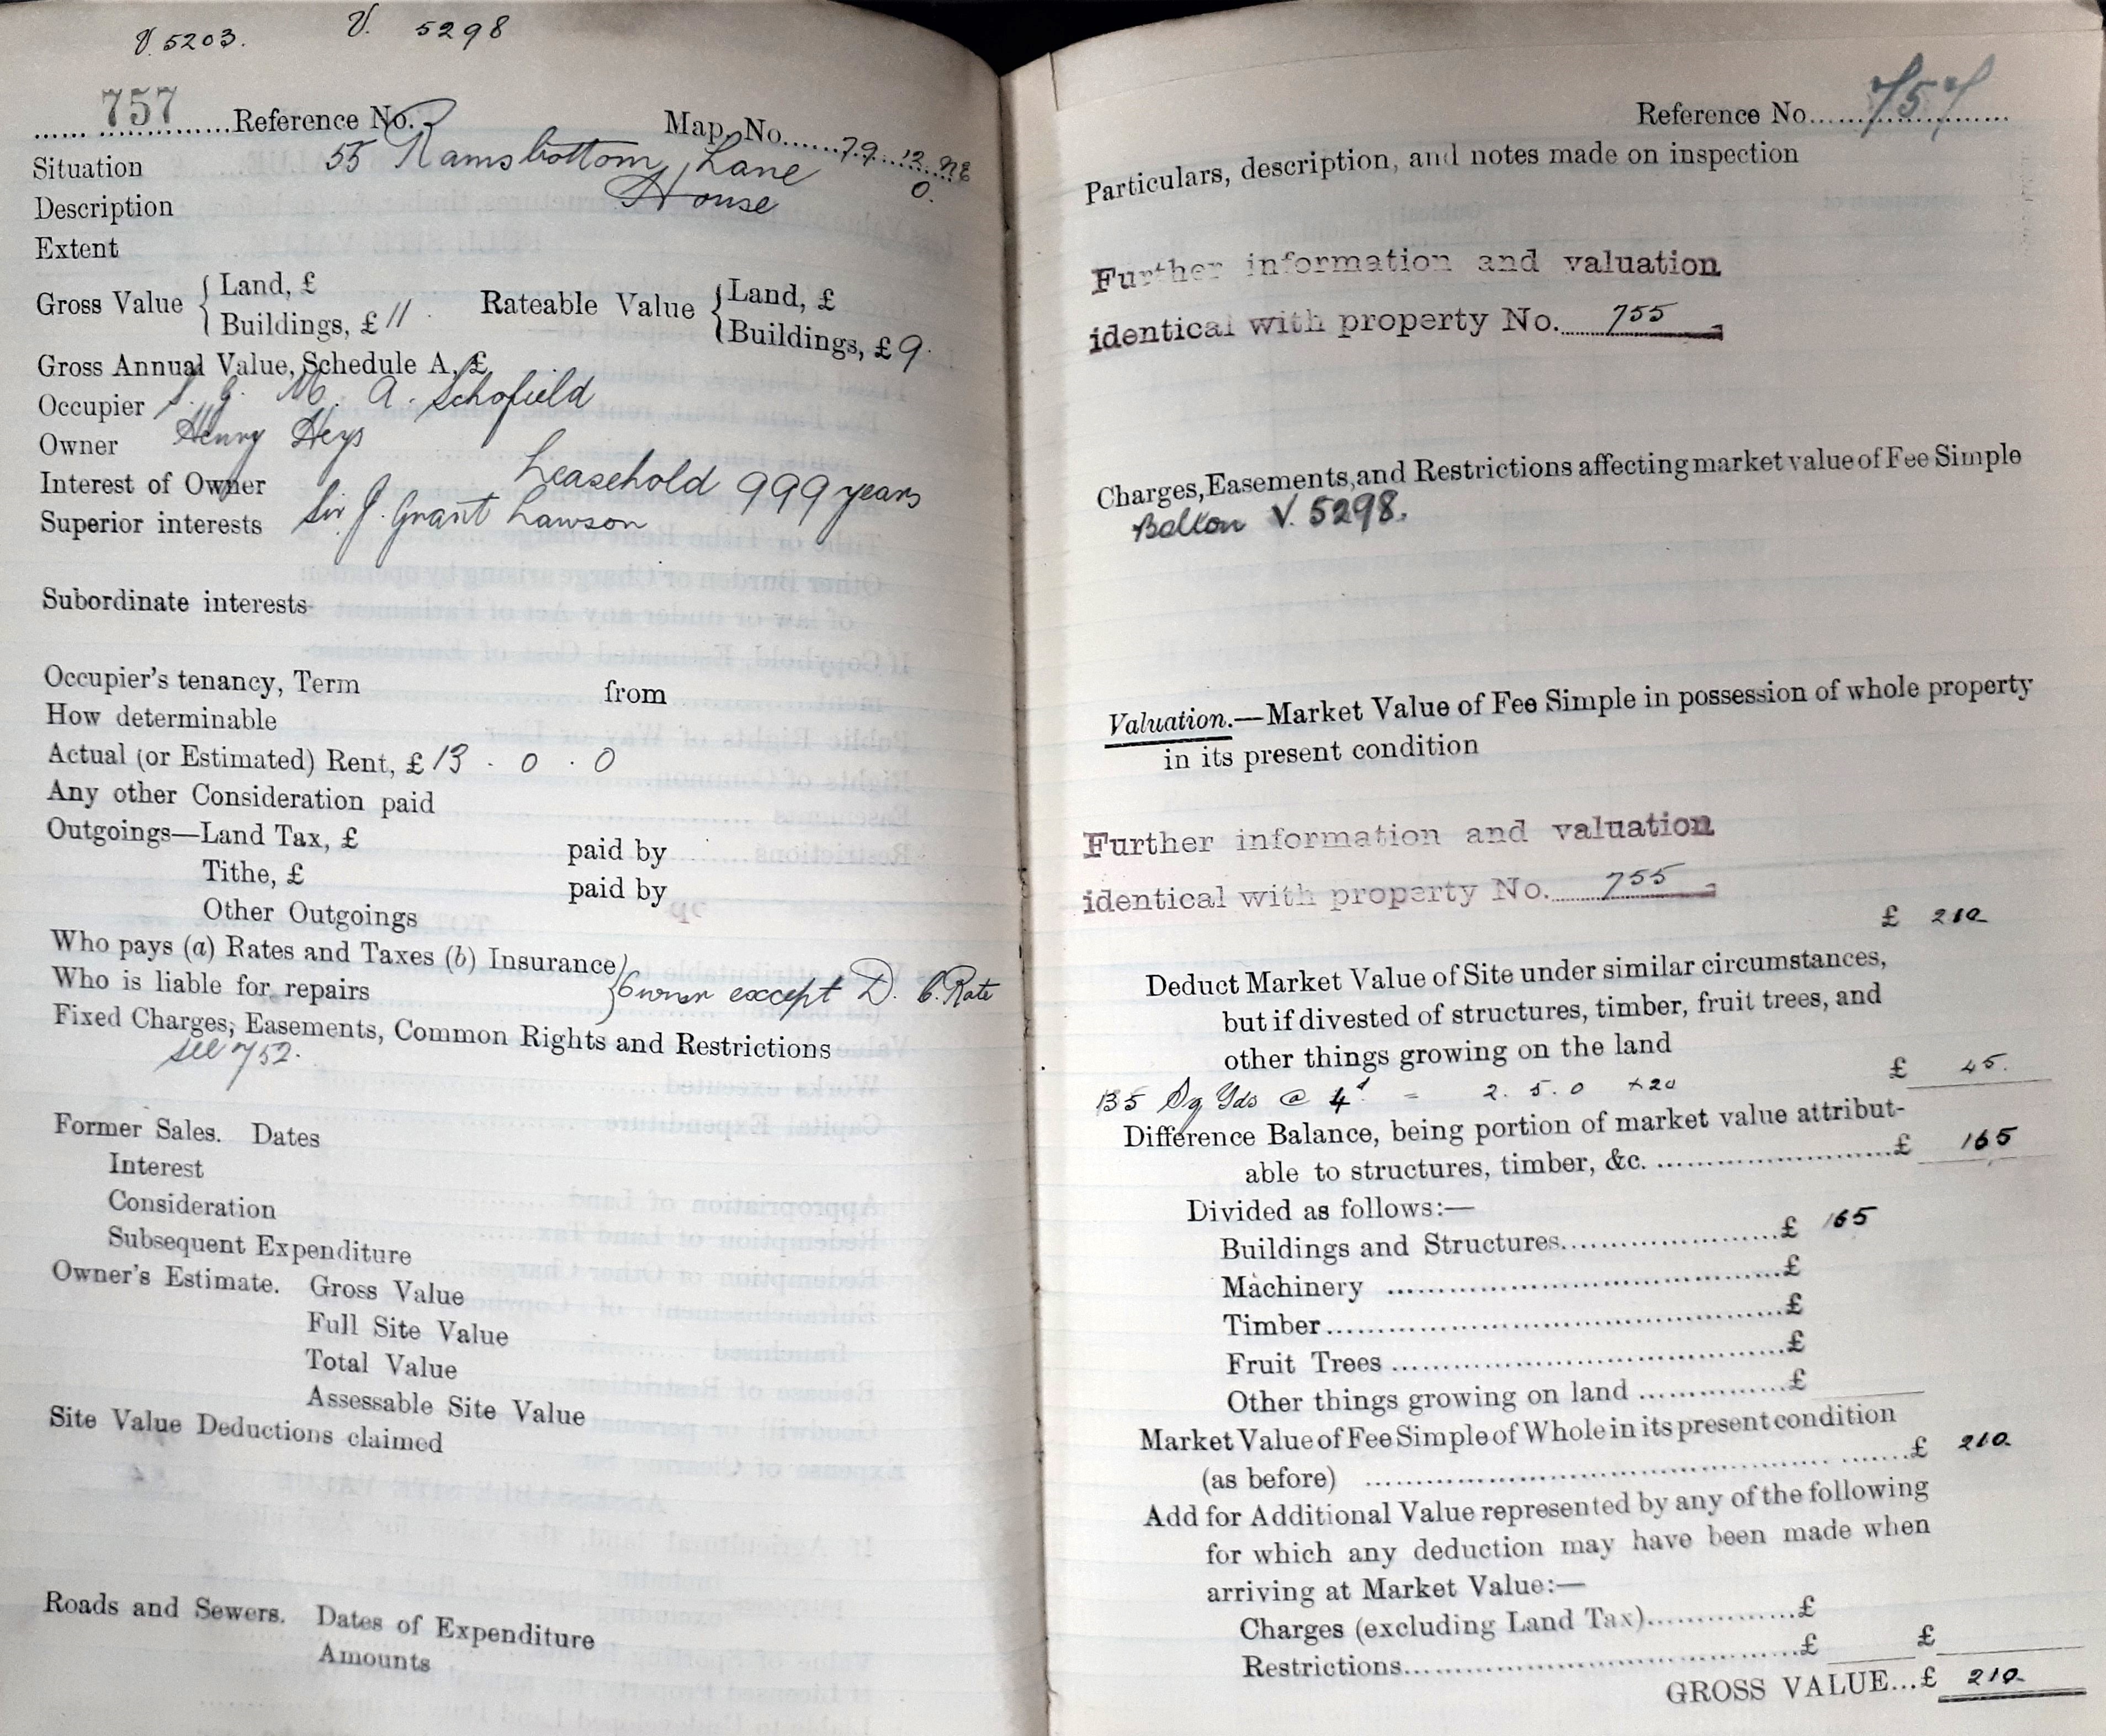 V. 5203. V. 5298
757 Reference No. Map. No. 79. 12. NE
Situation 55 Ramsbottom Lane 0.
Description House
Extent
Gross Value { Land, £
Buildings, £ 11. Rateable Value { Land, £
Buildings, £ 9.
Gross Annual Value, Schedule A, £
Occupier G. M. A. Schofield
Owner Henry Heys
Interest of Owner Leasehold 999 years
Superior interests Sir J. Grant Lawson
Subordinate interests
Occupier's tenancy, Term from
How determinable
Actual (or Estimated) Rent, £ 13 . 0 . 0
Any other Consideration paid
Outgoings—Land Tax, £ paid by
Tithe, £ paid by
Other Outgoings
Who pays (a) Rates and Taxes (b) Insurance }
Who is liable for repairs } Owner except D. C. Rate
Fixed Charges, Easements, Common Rights and Restrictions
see 752.
Former Sales. Dates
Interest
Consideration
Subsequent Expenditure
Owner's Estimate. Gross Value
Full Site Value
Total Value
Assessable Site Value
Site Value Deductions claimed
Roads and Sewers. Dates of Expenditure
Amounts
Reference No. 757
Particulars, description, and notes made on inspection
Further information and valuation
identical with property No. 755
Charges, Easements, and Restrictions affecting market value of Fee Simple
Bolton V. 5298.
Valuation.—Market Value of Fee Simple in possession of whole property
in its present condition
Further information and valuation
identical with property No. 755
£ 210
Deduct Market Value of Site under similar circumstances,
but if divested of structures, timber, fruit trees, and
other things growing on the land
£ 45.
135 Sq Yds @ 4d = 2. 5. 0 x20
Difference Balance, being portion of market value attribut-
able to structures, timber, &c. £ 165
Divided as follows:—
Buildings and Structures £ 165
Machinery £
Timber £
Fruit Trees £
Other things growing on land £
Market Value of Fee Simple of Whole in its present condition
(as before) £ 210.
Add for Additional Value represented by any of the following
for which any deduction may have been made when
arriving at Market Value:—
Charges (excluding Land Tax) £
Restrictions £ £
GROSS VALUE...£ 210